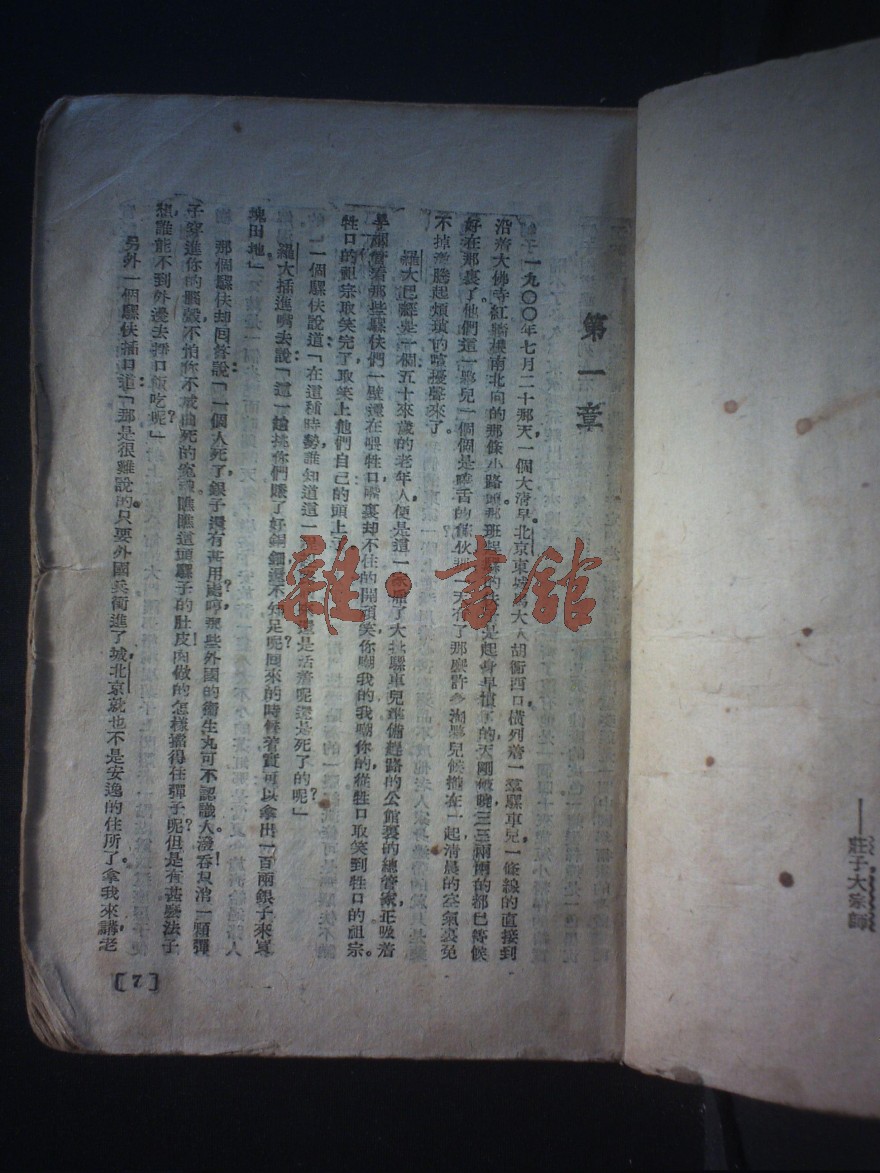 ——莊子大宗師
第一章
一九〇〇年七月二十那天一個大清早北京東城馬大人胡衕西口橫列着一羣騾車兒一條線的直接到
沿着大佛寺紅牆南北向的那條小路 那班 是起身早慣 的天剛破曉三三兩兩的都已等候
好在那裏了他們這一夥兒一個個是饒舌的傢伙那一天有了那麼許多淘夥兒候攏在一起清晨的空氣裏免
不掉沸騰起煩瑣的喧擾聲來了。
羅大已經是一個五十來歲的老年人便是這一 大批騾車兒準備趕路的公館裏的總管家正吸着
着那些騾伕們一壁還在喂牲口嘴裏却不住的開頑笑你嘲我的我嘲你的從牲口取笑到牲口的祖宗。
牲口的祖宗取笑完了取笑上他們自己的頭上
一個騾伕說道「在這種時勢誰知道這一 還是活着呢還是死了的呢」
羅大插進嘴去說「這一趟挑你們賺了好銅鈿還不知足呢回來的時候着實可以拿出一百兩銀子來買
塊田地」
那個騾伕却回答說「一個人死了銀子還有甚用處哼那些外國的衛生丸可不認識人潑呑只消一顆彈
子穿進你的腦殼不怕你不成曲死的寃魂瞧瞧這頭騾子的肚皮肉做的怎樣擋得住彈子呢但是有甚麼法子
想誰能不到外邊去掙口飯吃呢」
另外一個騾伕插口道「那是很難說的只要外國兵衝進了城北京就也不是安逸的住所了拿我來講老
[7]
雜·書館